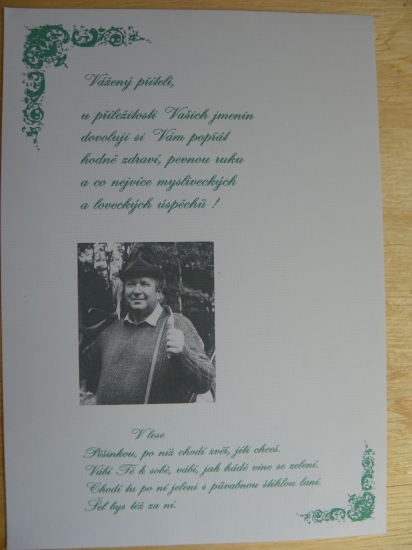 Vážený příteli,
u příležitosti Vašich jmenin
dovoluji si Vám popřát
hodně zdraví, pevnou ruku
a co nejvíce mysliveckých
a loveckých úspěchů !
V lese
Pěšinkou, po níž chodí zvěř, jíti chceš.
Vábí Tě k sobě, vábí, jak hádě vine se zelení.
Chodí tu po ní jeleni s půvabnou štíhlou laní.
Šel bys též za ní.